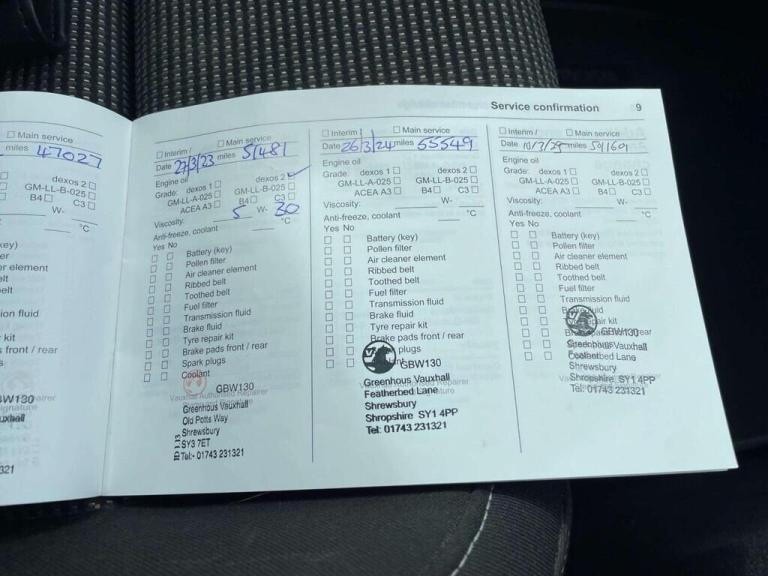 Service confirmation 9
Main service
miles 47027
dexos 2
GM-LL-B-025
C3
W-
°C
key)
er
er element
elt
elt
ion fluid
kit
front / rear
s
W130
uxhall
321
Interim / Main service
Date 27/3/23 miles 51481
Engine oil
Grade: dexos 1 dexos 2 ✓
GM-LL-A-025 GM-LL-B-025
ACEA A3 B4 C3
Viscosity: 5 W- 30
Anti-freeze, coolant °C
Yes No
Battery (key)
Pollen filter
Air cleaner element
Ribbed belt
Toothed belt
Fuel filter
Transmission fluid
Brake fluid
Tyre repair kit
Brake pads front / rear
Spark plugs
Coolant
GBW130
Vauxhall Authorised Repairer
Greenhous Vauxhall
Old Potts Way
Shrewsbury
SY3 7ET
Tel:- 01743 231321
Interim / Main service
Date 26/3/24 miles 55549
Engine oil
Grade: dexos 1 dexos 2
GM-LL-A-025 GM-LL-B-025
ACEA A3 B4 C3
Viscosity: W-
Anti-freeze, coolant °C
Yes No
Battery (key)
Pollen filter
Air cleaner element
Ribbed belt
Toothed belt
Fuel filter
Transmission fluid
Brake fluid
Tyre repair kit
Brake pads front / rear
plugs
GBW130
Greenhous Vauxhall
Featherbed Lane
Shrewsbury
Shropshire SY1 4PP
Tel: 01743 231321
Interim / Main service
Date miles
Engine oil
Grade: dexos 1 dexos 2
GM-LL-A-025 GM-LL-B-025
ACEA A3 B4 C3
Viscosity: W-
Anti-freeze, coolant °C
Yes No
Battery (key)
Pollen filter
Air cleaner element
Ribbed belt
Toothed belt
Fuel filter
Transmission fluid
fluid
repair kit
GBW130
Greenhous Vauxhall
Featherbed Lane
Shrewsbury
Shropshire SY1 4PP
Tel: 01743 231321